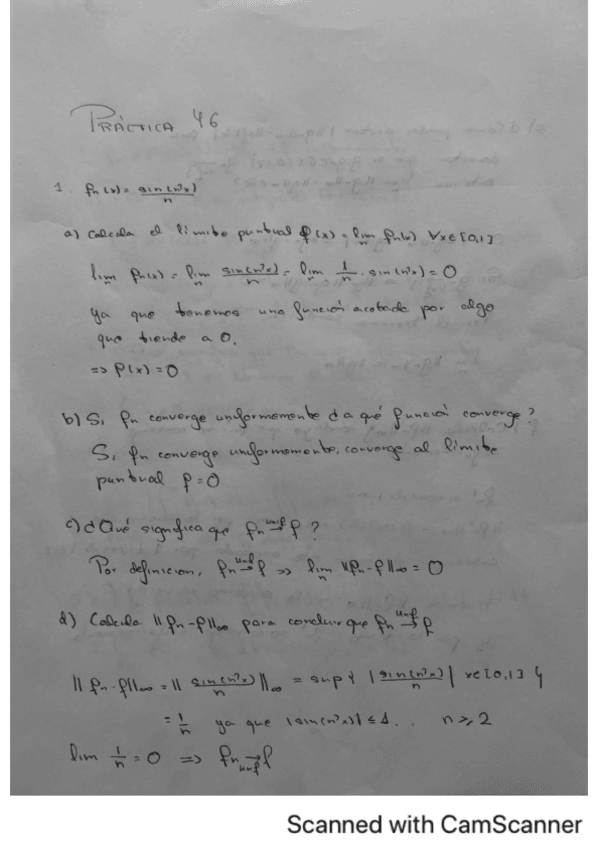 PRÁCTICA 46
1. fn(x) = sin(n²x)/n
a) Calcula el límite puntual f(x) = lim fn(x) ∀x∈[0,1]
lim fn(x) = lim sin(n²x)/n = lim 1/n · sin(n²x) = 0
ya que tenemos una función acotada por algo
que tiende a 0.
=> f(x) = 0
b) Si fn converge uniformemente ¿a qué función converge?
Si fn converge uniformemente, converge al límite
puntual f = 0
c) ¿Qué significa que fn unif→ f?
Por definición, fn unif→ f => lim ||fn - f||∞ = 0
d) Calcula ||fn - f||∞ para concluir que fn unif→ f
||fn - f||∞ = || sin(n²x)/n ||∞ = sup{ | sin(n²x)/n | x∈[0,1] }
= 1/n ya que |sin(n²x)| ≤ 1 . . n ≥ 2
lim 1/n = 0 => fn →unif f
Scanned with CamScanner